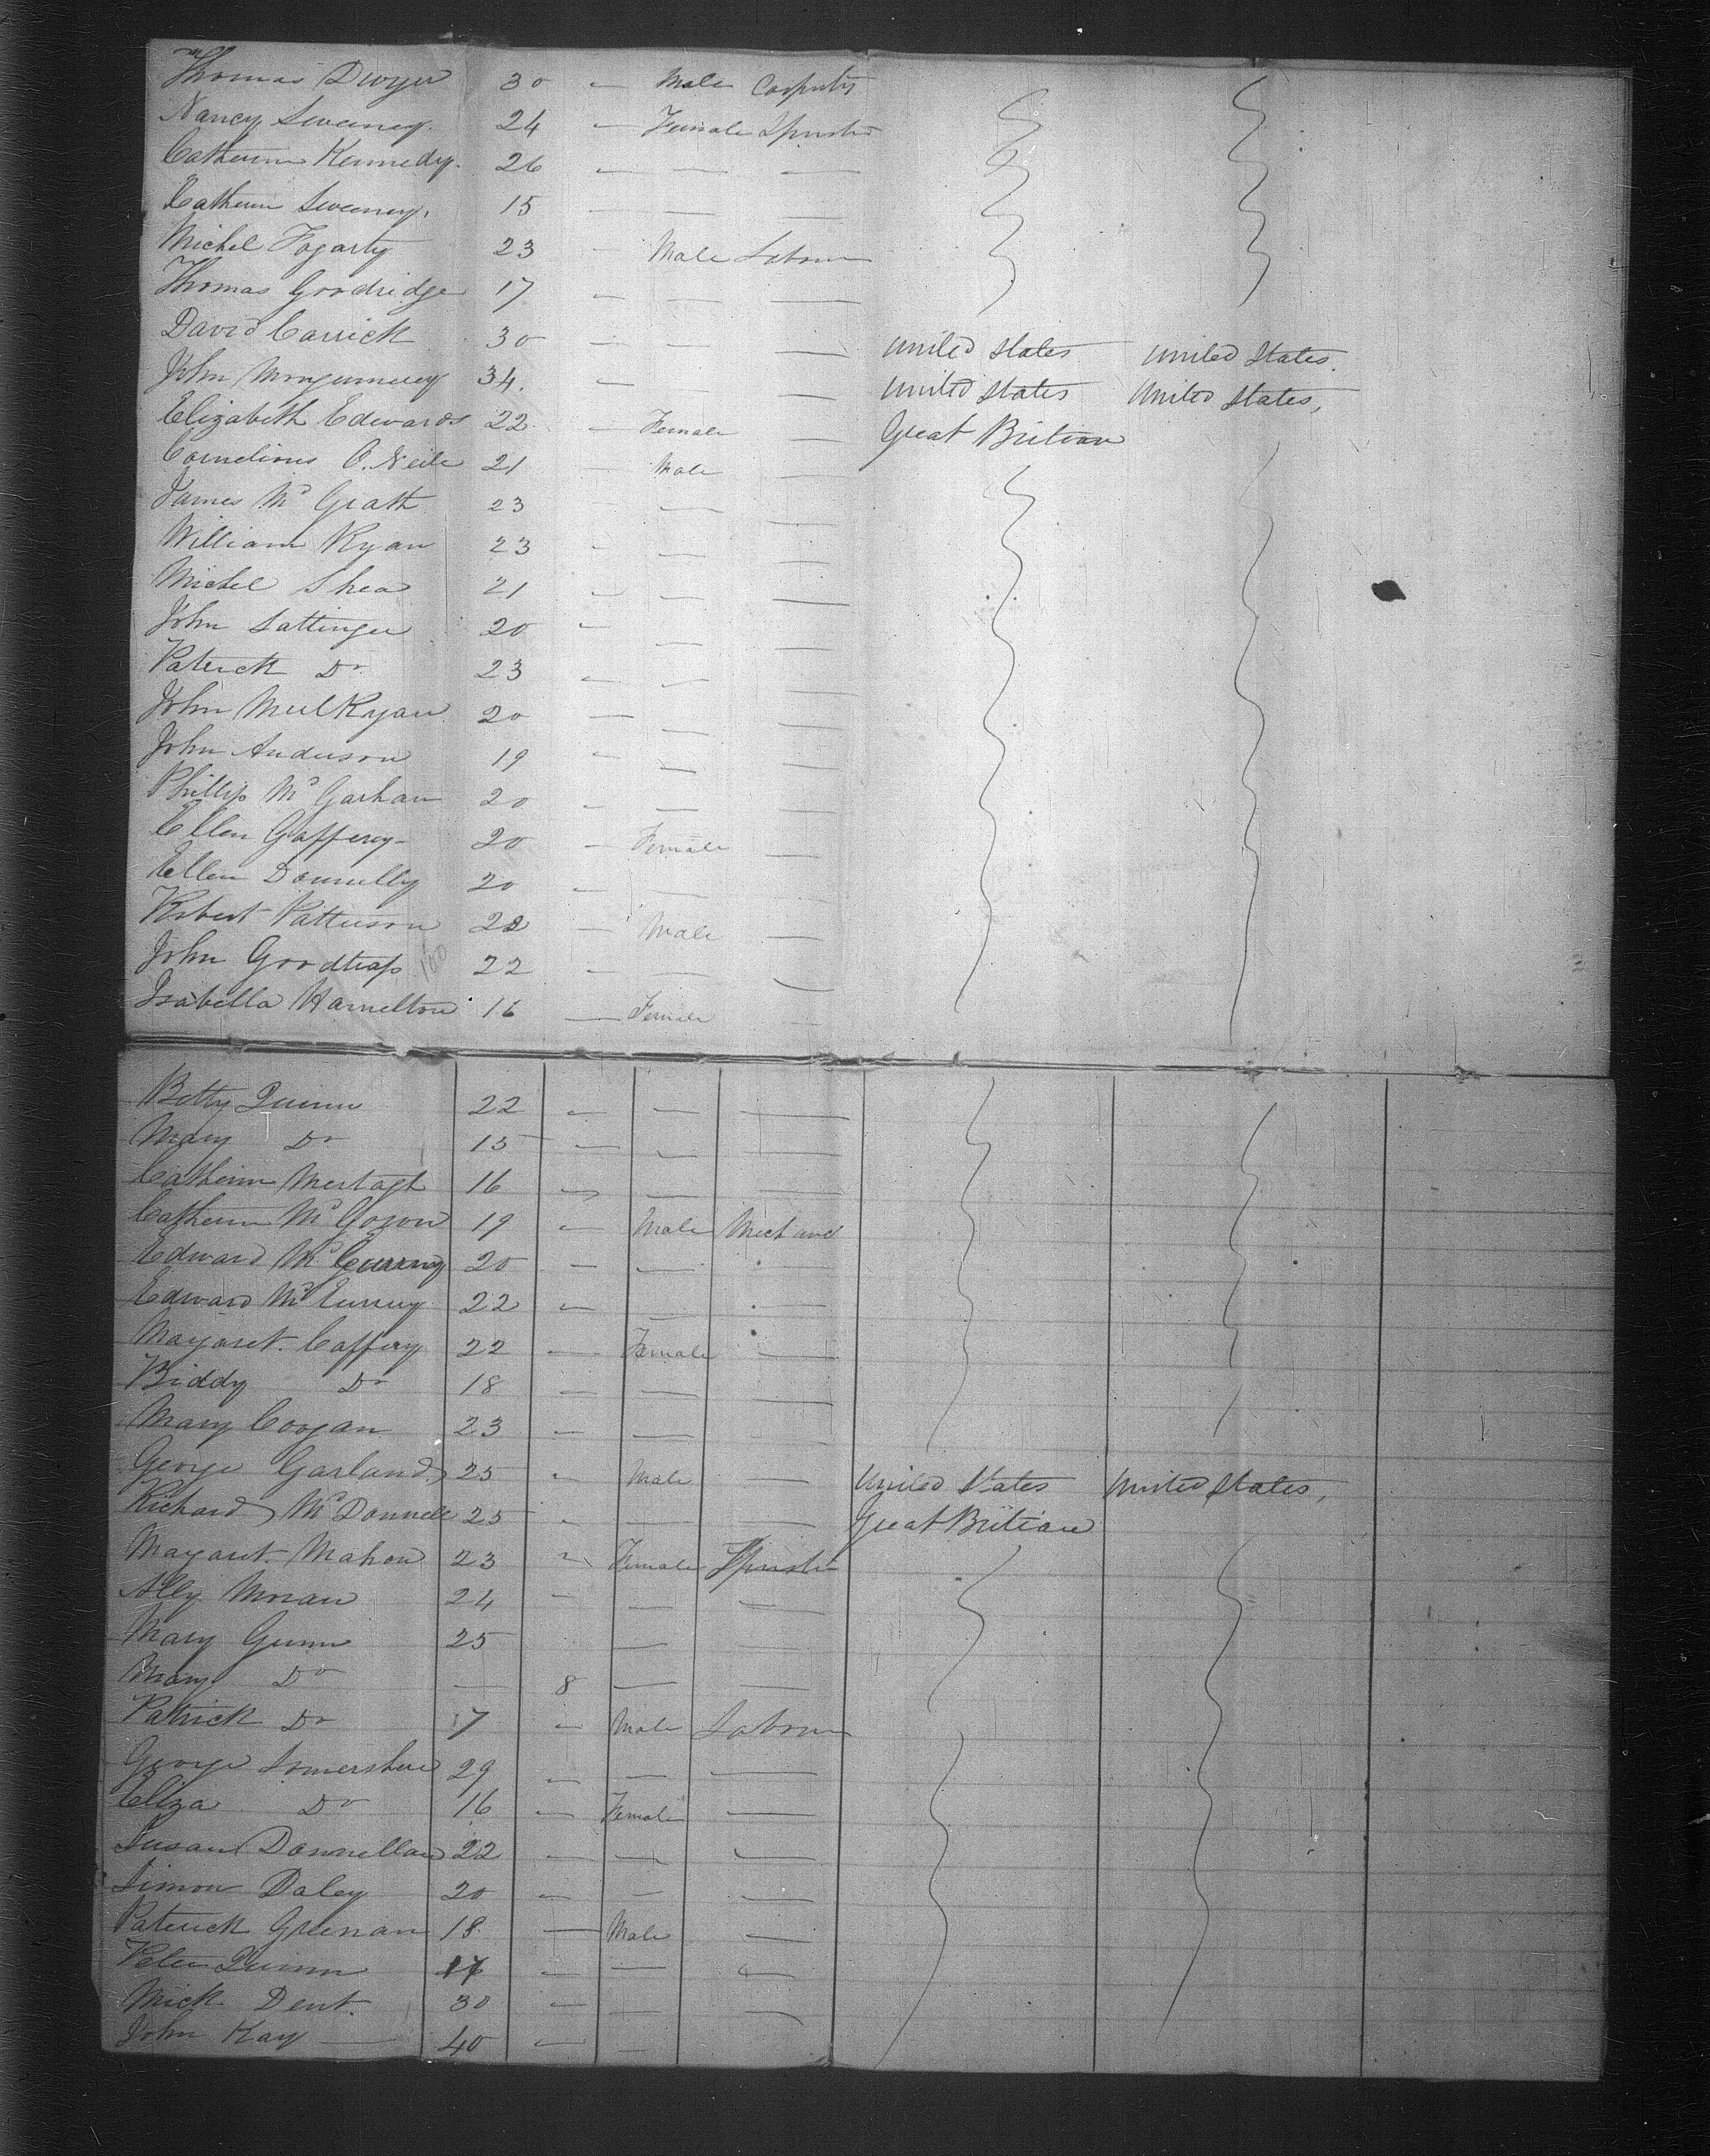 Thomas Dwyer 30 — Male Carpenter
Nancy Sweeney. 24 — Female Spinster
Catherine Kennedy. 26 — — —
Catherin Sweeney. 15 — — —
Michel Fogarty 23 — Male Labour
Thomas Goodridge 17 — — —
David Carrick 30 — — — United States United States.
John Mongumerey 34. — — United States United States,
Elizabeth Edwards 22 — Female — Great Britian
Cornelious O. Neile 21 — Male —
James Mc Grath 23 — — —
William Ryan 23 — — —
Michel Shea 21 — — —
John Sattinger 20 — — —
Paterick Do 23 — — —
John Mul Ryan 20 — — —
John Anderson 19 — — —
Phillip Mc Garhan 20 — — —
Ellen Gafferey 20 — Female —
Ellen Donnelly 20 — — —
Robert Patterson 22 — Male —
John Goodtrap 100 22 — — —
Isabella Hamelton 16 — Female —
Betty Quinn 22 — — —
Mary Do 15 — — —
Catherin Mertagh 16 — — —
Catherin Mc Goron 19 — Male Mechanic
Edward Mc 20 — — —
Edward Mc Eurney 22 — — —
Margaret. Caffery 22 — Female —
Biddy Do 18 — — —
Mary Coogan 23 — — —
George Garland 25 — Male — United States United States,
Richard Mc Donnell 25 — — — Great Britian
Margaret. Mahon 23 — Female Spinster
Ally Moran 24 — — —
Mary Gunn 25 — —
Mary Do — 8 — —
Patrick Do 7 — Male Labour
George 29 — — —
Eliza Do 16 — Female —
Susan Donnellan 22 — — —
Simon Daley 20 — — —
Paterick Greenan 18. — Male —
Peter Quinn 17 — — —
Mick Dent. 30 — — —
John Kay — 40 — —